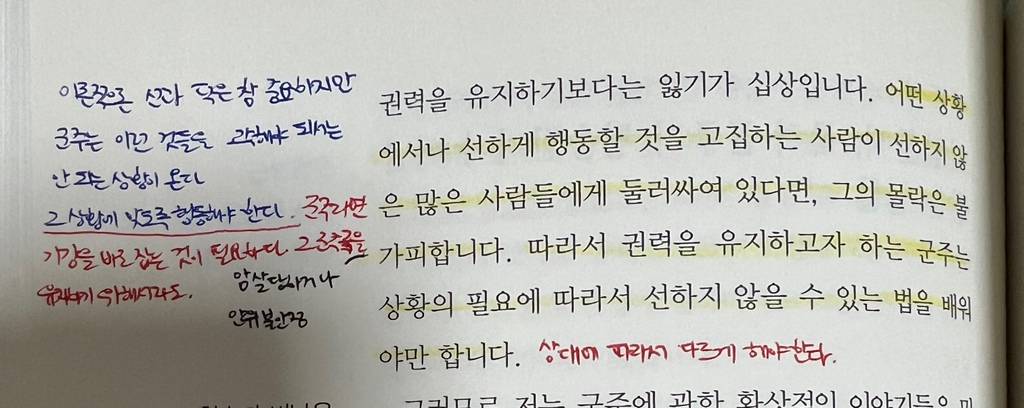 이론적으론 선과 덕은 참 중요하지만
군주는 이런 것들을 고수해야 되서는
안 되는 상황이 온다
그 상황에 맞도록 행동해야 한다. 군주라면
기강을 바로 잡는 것이 필요하다. 그 군주국을
유지하기 위해서라도.
암살당하거나
안위 불안정
권력을 유지하기보다는 잃기가 십상입니다. 어떤 상황
에서나 선하게 행동할 것을 고집하는 사람이 선하지 않
은 많은 사람들에게 둘러싸여 있다면, 그의 몰락은 불
가피합니다. 따라서 권력을 유지하고자 하는 군주는
상황의 필요에 따라서 선하지 않을 수 있는 법을 배워
야만 합니다. 상대에 따라서 다르게 해야한다.
그러므로 저는 군주에 관한 환상적인 이야기들은